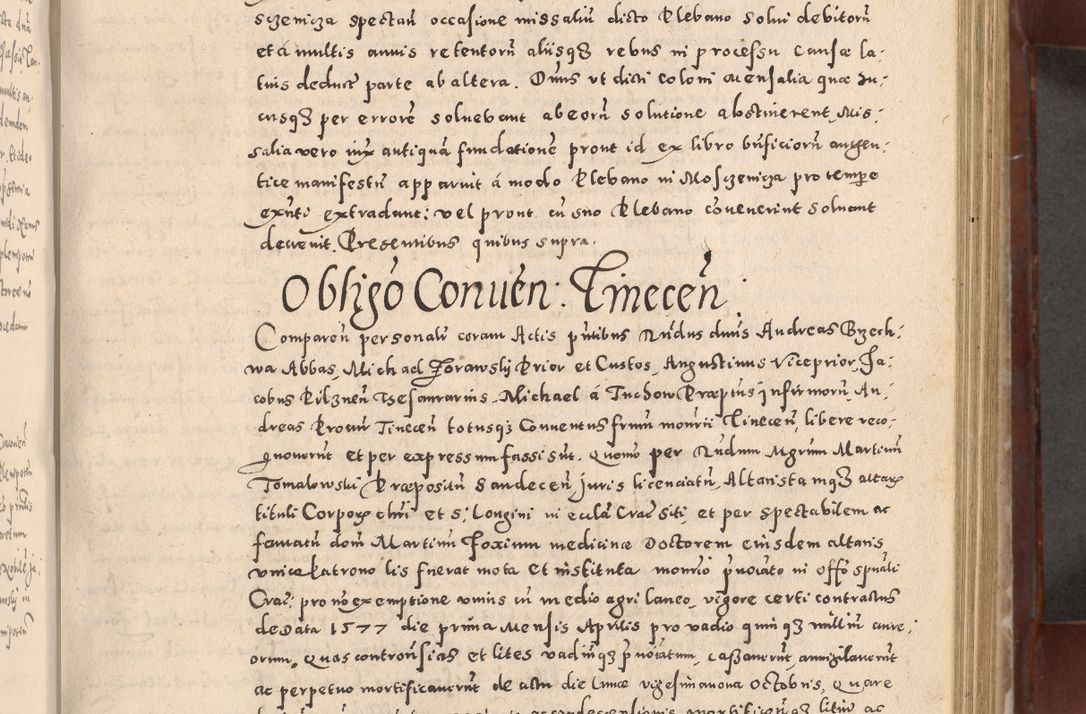 sczenicza spectan̄ occasione missaliū dicto Plebano solui debitorū
et á multis annis retentorū aliisq₃ rebus in processu causæ la-
tius deduct parte ab altera. Dūns vt dicti coloni mensalia quæ hu-
cusq₃ per errorē soluebant ab eorū solutione abstinerent, Mis-
salia vero iux antiquā fundationē prout id ex libro bn̄ficiorū augen-
tice manifestū apparuit á modo Plebano in Mosczenicza pro tempe
exn̄ti extradant: vel prout cū suo Plebano cōuenerint soluant
decreuit. Presentibus quibus supra.
Obligō Conuēn: Tinecēn:
Comparen̄ personalr̄ coram Actis pn̄tibus Rn̄dus dn̄us Andreas Brzech-
wa Abbas, Michael Zorawsky Prior et Custos, Angustinus Viceprior, Ja-
cobus Pilznen̄ Thesaurarius, Michael á Tuchow Præptus jnfirmorū, An-
dreas Tinecen̄ totusq₃ Conuentus frum mon̄rii Tinecen̄, libere reco-
gnouerūt et per expressum fassi sūt. Quomō per Rn̄dum Mgrūm Martinū
Tomalowski Præpositū Sandecen̄, juris licenciatū, Altarista mq₃ altarꝫ
tituli Corporꝫ chr̄i et s: Longini in eccla Crac̄ siti, et per spectabilem ac
famatū dom̄ Martinū Foxium medicinæ Doctorem eiusdem altaris
vnicu Patrono lis fuerat mota et instituta mon̄rio pn̄oīato in offō spūali
Crac̄: pro nō exemptione vnius in medio agri laneo, vigore certi contractus
de data 1577 die prīma Mensis Aprilis pro vadio quinq₃ millīū aure-
orum, Quas controūsias et lites vadiūq₃ pn̄oīatum, cassauerūt, annigilauerūt
ac perpetuo mortificauerūt de actu die lunæ vigesimanona Octobris, Quare